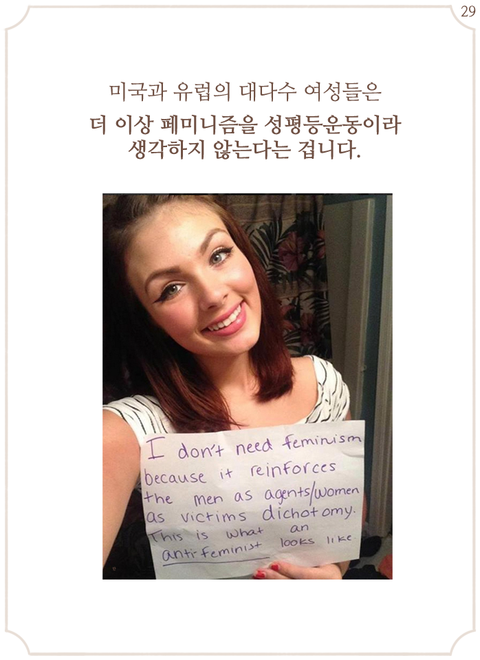 29
미국과 유럽의 대다수 여성들은
더 이상 페미니즘을 성평등운동이라
생각하지 않는다는 겁니다.
I don't need feminism
because it reinforces
the men as agents/women
as victims dichotomy.
This is what an
antifeminist looks like.